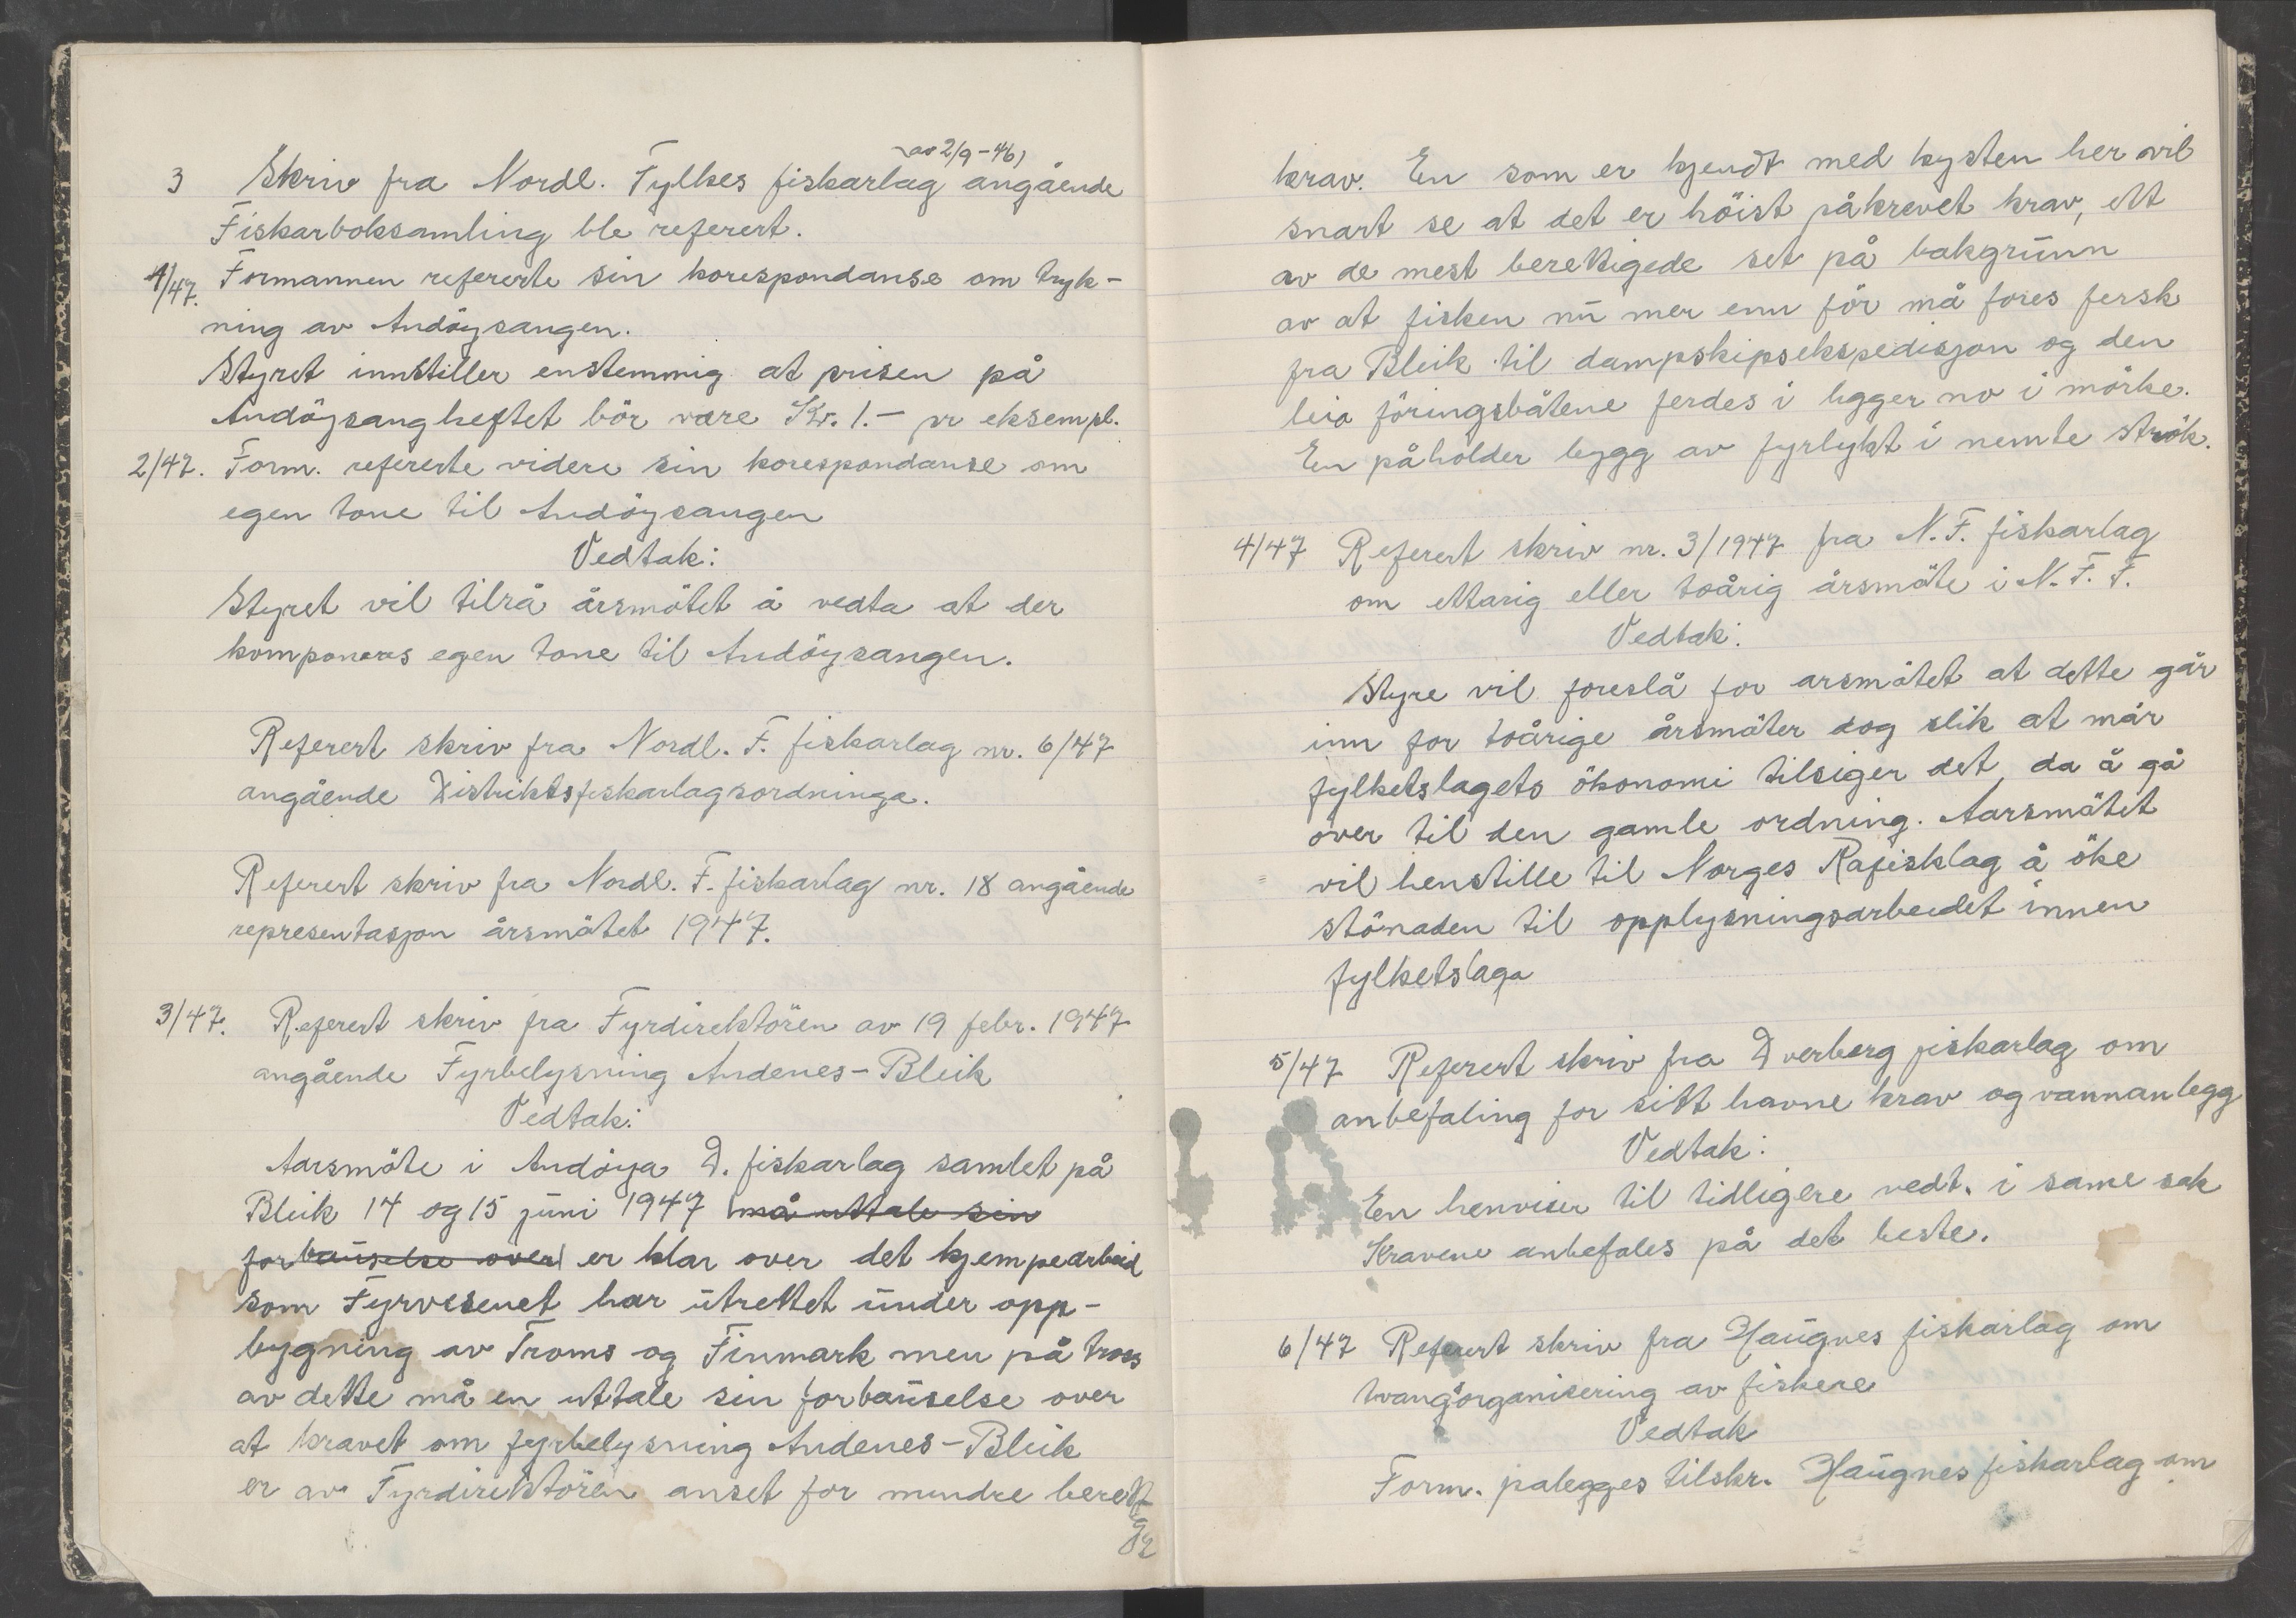 (av 2/9-46)
3 Skriv fra Nordl. Fylkes fiskarlag angående
Fiskarboksamling ble referert.
1/47. Formannen refererte sin korespondanse om tryk-
ning av Andöysangen.
Styret innstiller enstemmig at prisen på
Andöysangheftet bör være Kr. 1.- pr eksempl.
2/47. Form. refererte videre sin korespondanse om
egen tone til Andöysangen
Vedtak:
Styret vil tilrå årsmötet å vedta at der
komponeres egen tone til Andöysangen.
Referert skriv fra Nordl. F. fiskarlag nr. 6/47
angående Distriktsfiskarlagsordninga.
Referert skriv fra Nordl. F. fiskarlag nr. 18 angående
representasjon årsmötet 1947.
3/47. Referert skriv fra Fyrdirektören av 19 febr. 1947
angående Fyrbelysning Andenes-Bleik
Vedtak:
Aarsmöte i Andöya D. fiskarlag samlet på
Bleik 14 og 15 juni 1947 må uttale sin
forbauselse over er klar over det kjempearbeid
som Fyrvesenet har utrettet under opp-
bygning av Troms og Finmark men på tross
av dette må en uttale sin forbauselse over
at kravet om fyrbelysning Andenes-Bleik
er av Fyrdirektören anset for mindre berett
ige
krav. En som er kjendt med kysten her vil
snart se at det er höist påkrevet krav, ett
av de mest berettigede set på bakgrunn
av at fisken nu mer enn för må fores fersk
fra Bleik til dampskipsekspedisjon og den
leia föringsbåtene ferdes i ligger no i mörke.
En påholder bygg av fyrlykt i nemte strök.
4/47 Referert skriv nr. 3/1947 fra N.F. fiskarlag
om ettarig eller toårig årsmöte i N.F.F.
Vedtak:
Styre vil foreslå for arsmötet at dette går
inn for toårige årsmöter dog slik at når
fylketslagets ökonomi tilsiger det, da å gå
over til den gamle ordning. Aarsmötet
vil henstille til Norges Rafisklag å öke
stönaden til opplysningsarbeidet innen
fylketslaga
5/47 Referert skriv fra Dverberg fiskarlag om
anbefaling for sitt havne krav og vannanlegg
Vedtak:
En henviser til tidligere vedt. i same sak
Kravene anbefales på det beste.
6/47 Referert skriv fra Haugnes fiskarlag om
tvangsorganisering av fiskere
Vedtak
Form. palegges tilskr. Haugnes fiskarlag om